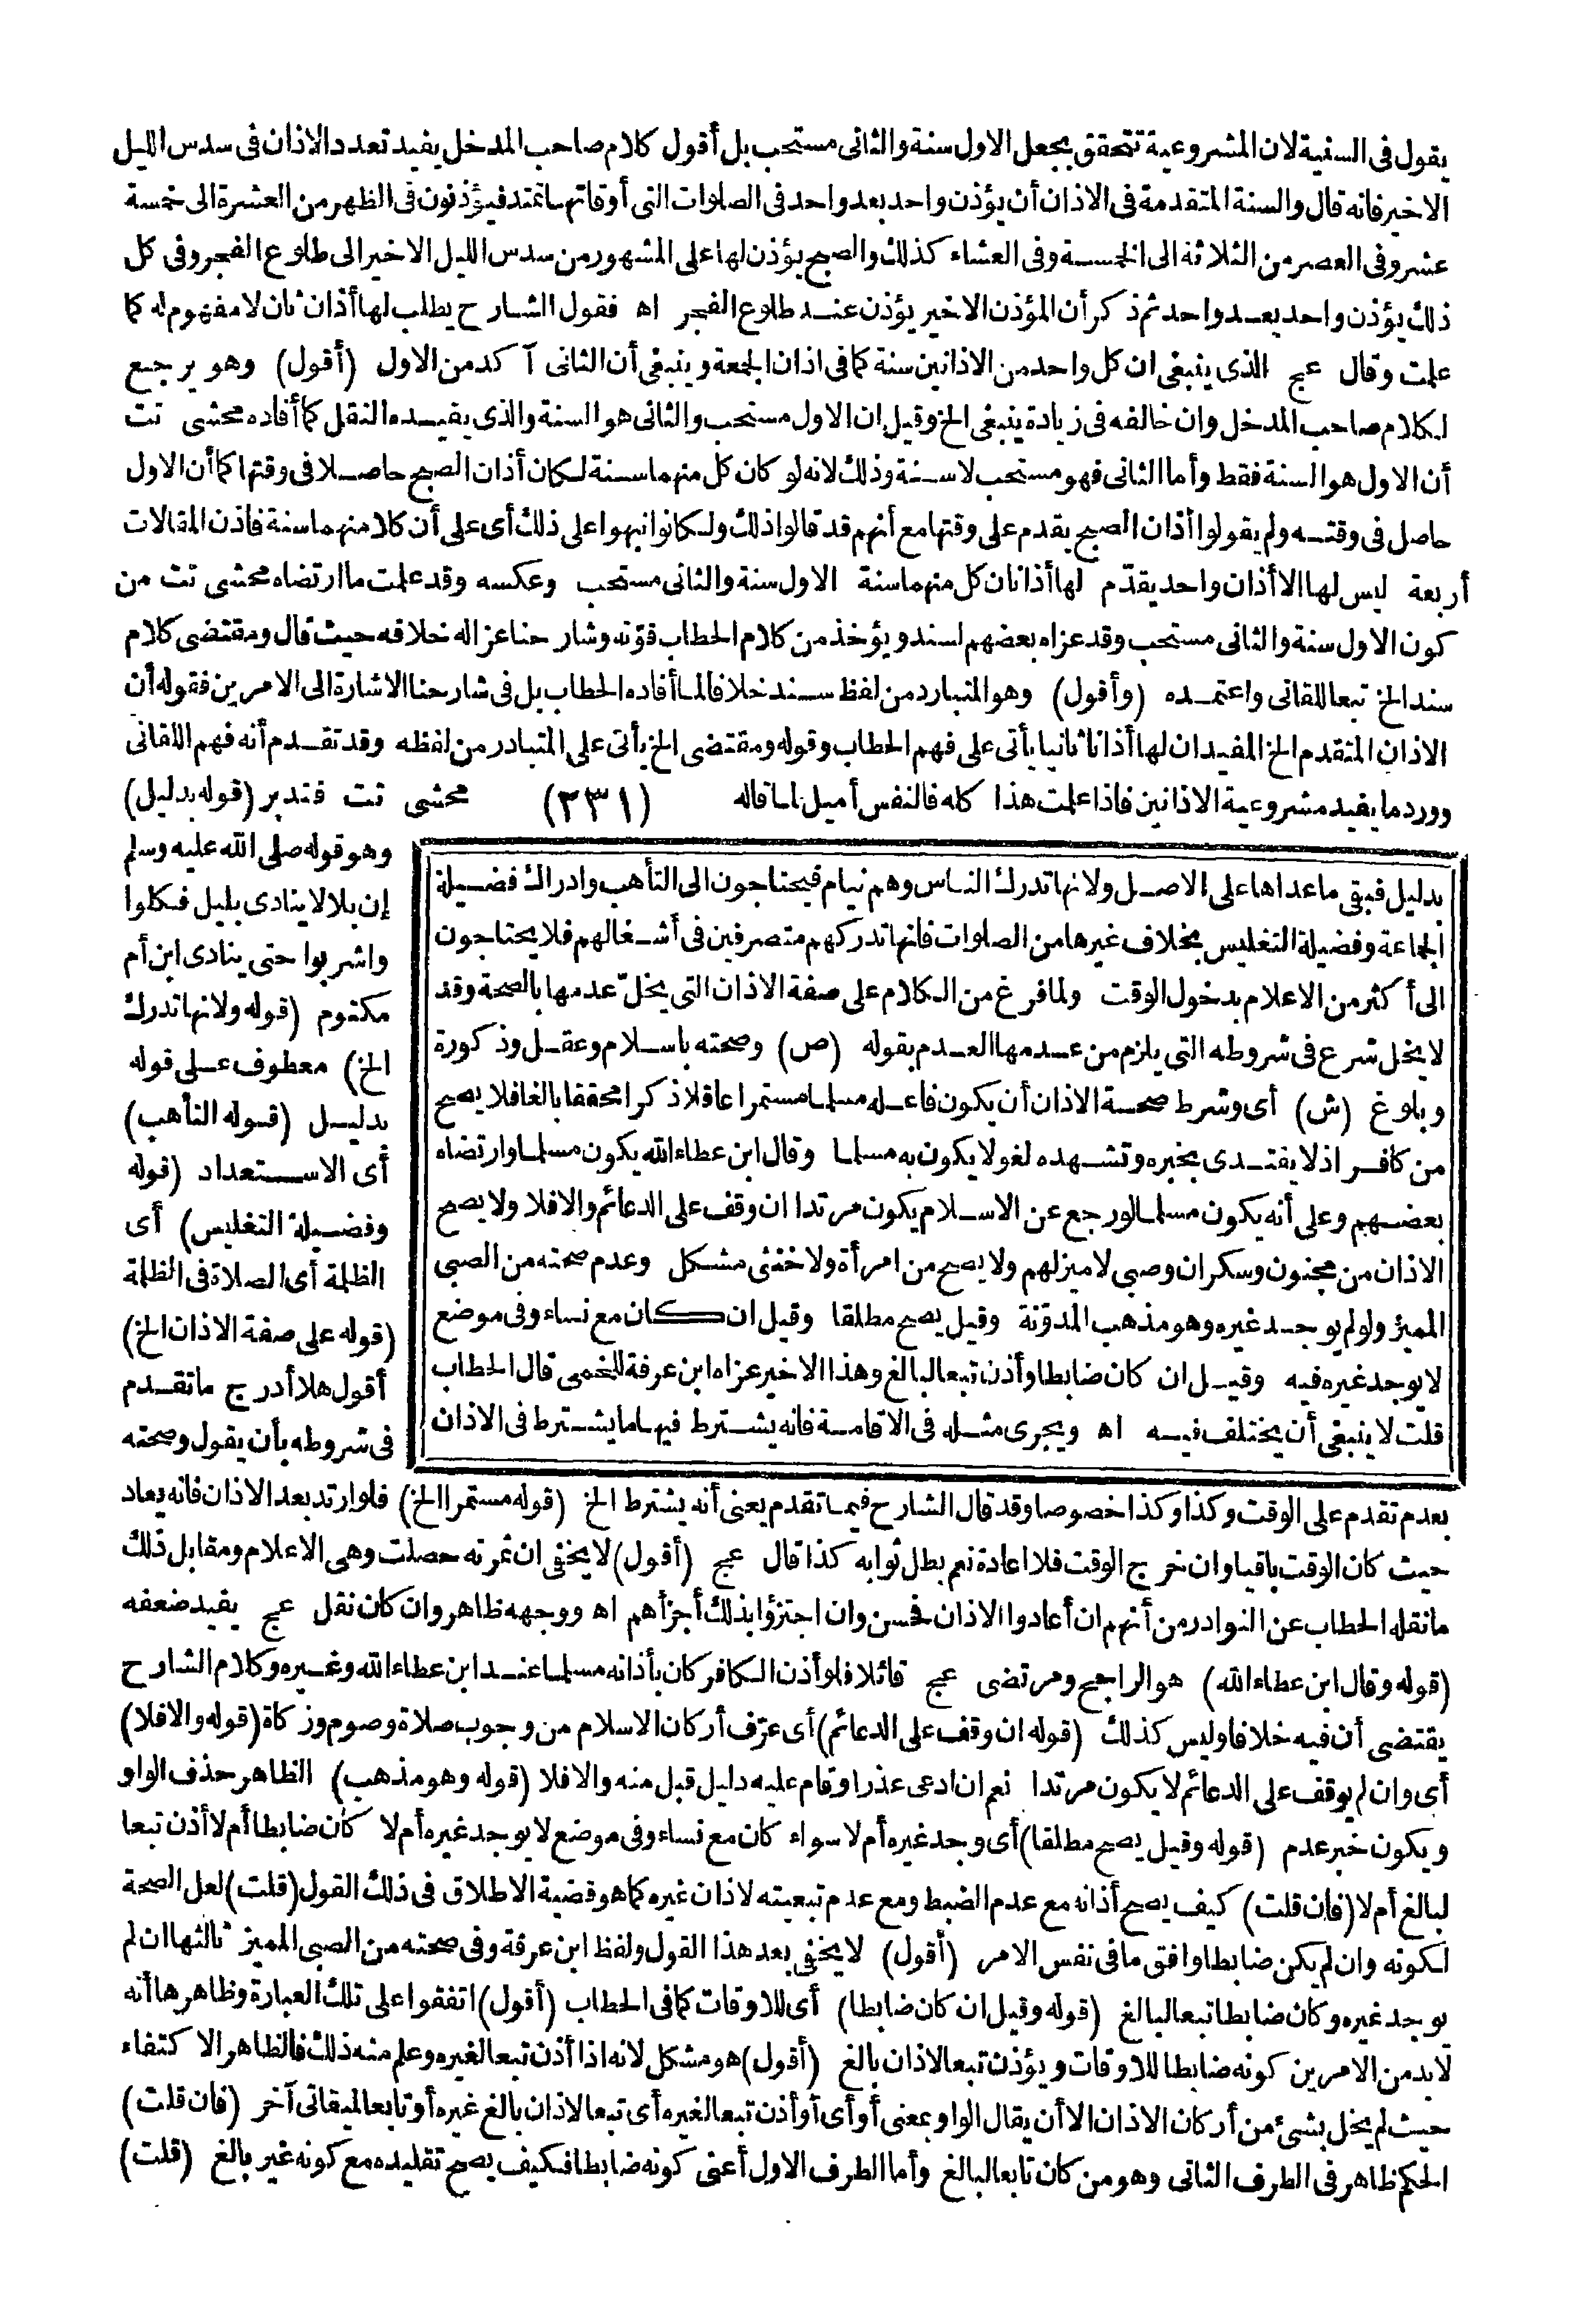 يقول في السنية لان المشروعية تتحقق بجعل الاول سنة والثاني مستحب بل أقول كلام صاحب المدخل يفيد تعدد الاذان في سدس الليل
الاخير فانه قال والسنة المتقدمة في الاذان أن يؤذن واحد بعد واحد في الصلوات التي أوقاتها تمتد فيؤذنون في الظهر من العشرة الى خمسة
عشر وفي العصر من الثلاثة الى الخمسة وفي العشاء كذلك والصبح يؤذن لها على المشهور من سدس الليل الاخير الى طلوع الفجر وفي كل
ذلك يؤذن واحد بعد واحد ثم ذكر أن المؤذن الاخير يؤذن عند طلوع الفجر اه فقول الشارح يطلب لها أذان ثان لا مفهوم له كما
علمت وقال عج الذي ينبغي ان كل واحد من الاذانين سنة كما في اذان الجمعة وينبغي أن الثاني آكد من الاول (أقول) وهو يرجع
لكلام صاحب المدخل وان خالفه في زيادة ينبغي الخ وقيل ان الاول مستحب والثاني هو السنة والذي يفيده النقل كما أفاده محشي تت
أن الاول هو السنة فقط وأما الثاني فهو مستحب لا سنة وذلك لانه لو كان كل منهما سنة لكان أذان الصبح حاصلا في وقتها كما أن الاول
حاصل في وقته ولم يقولوا أذان الصبح يقدم على وقتها مع أنهم قد قالوا ذلك ولكانوا نبهوا على ذلك أي على أن كلا منهما سنة فاذن المقالات
أربعة ليس لها الا أذان واحد يقدّم لها أذانان كل منهما سنة الاول سنة والثاني مستحب وعكسه وقد علمت ما ارتضاه محشي تت من
كون الاول سنة والثاني مستحب وقد عزاه بعضهم لسند ويؤخذ من كلام الحطاب قوّته وشارحنا عزا له خلافه حيث قال ومقتضى كلام
سند الخ تبعا للقاني واعتمده (وأقول) وهو المتبادر من لفظ سند خلافا لما أفاده الحطاب بل في شارحنا الاشارة الى الامرين فقوله أن
الاذان المتقدم الخ المفيد ان لها أذانا ثانيا يأتي على فهم الحطاب وقوله ومقتضى الخ يأتي على المتبادر من لفظه وقد تقدم أنه فهم اللقاني
وورد ما يفيد مشروعية الاذانين فاذا علمت هذا كله فالنفس أميل لما قاله (٢٣١) محشي تت فتدبر (قوله بدليل)
وهو قوله صلى الله عليه وسلم
إن بلالا ينادي بليل فكلوا
واشربوا حتى ينادي ابن أم
مكتوم (قوله ولانها تدرك
الخ) معطوف على قوله
بدليل (قوله التأهب)
أي الاستعداد (قوله
وفضيلة التغليس) أي
الظلمة أي الصلاة في الظلمة
(قوله على صفة الاذان الخ)
أقول هلا أدرج ما تقدم
في شروطه بأن يقول وصحته
بدليل فبقي ما عداها على الاصل ولانها تدرك الناس وهم نيام فيحتاجون الى التأهب وادراك فضيلة
الجماعة وفضيلة التغليس بخلاف غيرها من الصلوات فانها تدركهم متصرفين في أشغالهم فلا يحتاجون
الى أكثر من الاعلام بدخول الوقت ولما فرغ من الكلام على صفة الاذان التي يخلّ عدمها بالصحة وقد
لا يخل شرع في شروطه التي يلزم من عدمها العدم بقوله (ص) وصحته باسلام وعقل وذكورة
وبلوغ (ش) أي وشرط صحة الاذان أن يكون فاعله مسلما مستمرا عاقلا ذكرا محققا بالغا فلا يصح
من كافر اذ لا يقتدى بخبره وتشهده لغو لا يكون به مسلما وقال ابن عطاء الله يكون مسلما وارتضاه
بعضهم وعلى أنه يكون مسلما لو رجع عن الاسلام يكون مرتدا ان وقف على الدعائم والا فلا ولا يصح
الاذان من مجنون وسكران وصبي لا ميز لهم ولا يصح من امرأة ولا خنثى مشكل وعدم صحته من الصبي
المميز ولو لم يوجد غيره وهو مذهب المدوّنة وقيل يصح مطلقا وقيل ان كان مع نساء وفي موضع
لا يوجد غيره فيه وقيل ان كان ضابطا وأذن تبعا لبالغ وهذا الاخير عزاه ابن عرفة للخمي قال الحطاب
قلت لا ينبغي أن يختلف فيه اه ويجري مثله في الاقامة فانه يشترط فيها ما يشترط في الاذان
بعدم تقدم على الوقت وكذا وكذا خصوصا وقد قال الشارح فيما تقدم يعني أنه يشترط الخ (قوله مستمرا الخ) فلو ارتد بعد الاذان فانه يعاد
حيث كان الوقت باقيا وان خرج الوقت فلا اعادة نعم بطل ثوابه كذا قال عج (أقول) لا يخفى ان ثمرته حصلت وهي الاعلام ومقابل ذلك
ما نقله الحطاب عن النوادر من أنهم ان أعادوا الاذان فحسن وان اجتزؤا بذلك أجزأهم اه ووجهه ظاهر وان كان نقل عج يفيد ضعفه
(قوله وقال ابن عطاء الله) هو الراجح ومرتضى عج قائلا فلو أذن الكافر كان بأذانه مسلما عند ابن عطاء الله وغيره وكلام الشارح
يقتضي أن فيه خلافا وليس كذلك (قوله ان وقف على الدعائم) أي عرّف أركان الاسلام من وجوب صلاة وصوم وزكاة (قوله والا فلا)
أي وان لم يوقف على الدعائم لا يكون مرتدا نعم ان ادعى عذرا وقام عليه دليل قبل منه والا فلا (قوله وهو مذهب) الظاهر حذف الواو
ويكون خبر عدم (قوله وقيل يصح مطلقا) أي وجد غيره أم لا سواء كان مع نساء وفي موضع لا يوجد غيره أم لا كان ضابطا أم لا أذن تبعا
لبالغ أم لا (فان قلت) كيف يصح أذانه مع عدم الضبط ومع عدم تبعيته لاذان غيره كما هو قضية الاطلاق في ذلك القول (قلت) لعل الصحة
لكونه وان لم يكن ضابطا وافق ما في نفس الامر (أقول) لا يخفى بعد هذا القول ولفظ ابن عرفة وفي صحته من الصبي المميز ثالثها ان لم
يوجد غيره وكان ضابطا تبعا لبالغ (قوله وقيل ان كان ضابطا) أي للاوقات كما في الحطاب (أقول) اتفقوا على تلك العبارة وظاهرها أنه
لا بد من الامرين كونه ضابطا للاوقات ويؤذن تبعا لاذان بالغ (أقول) هو مشكل لانه اذا أذن تبعا لغيره وعلم منه ذلك فالظاهر الاكتفاء
حيث لم يخل بشئ من أركان الاذان الا أن يقال الواو بمعنى أو أي أو أذن تبعا لغيره أي تبعا لاذان بالغ غيره أو تابعا لميقاتي آخر (فان قلت)
الحكم ظاهر في الطرف الثاني وهو من كان تابعا لبالغ وأما الطرف الاول أعني كونه ضابطا فكيف يصح تقليده مع كونه غير بالغ (قلت)